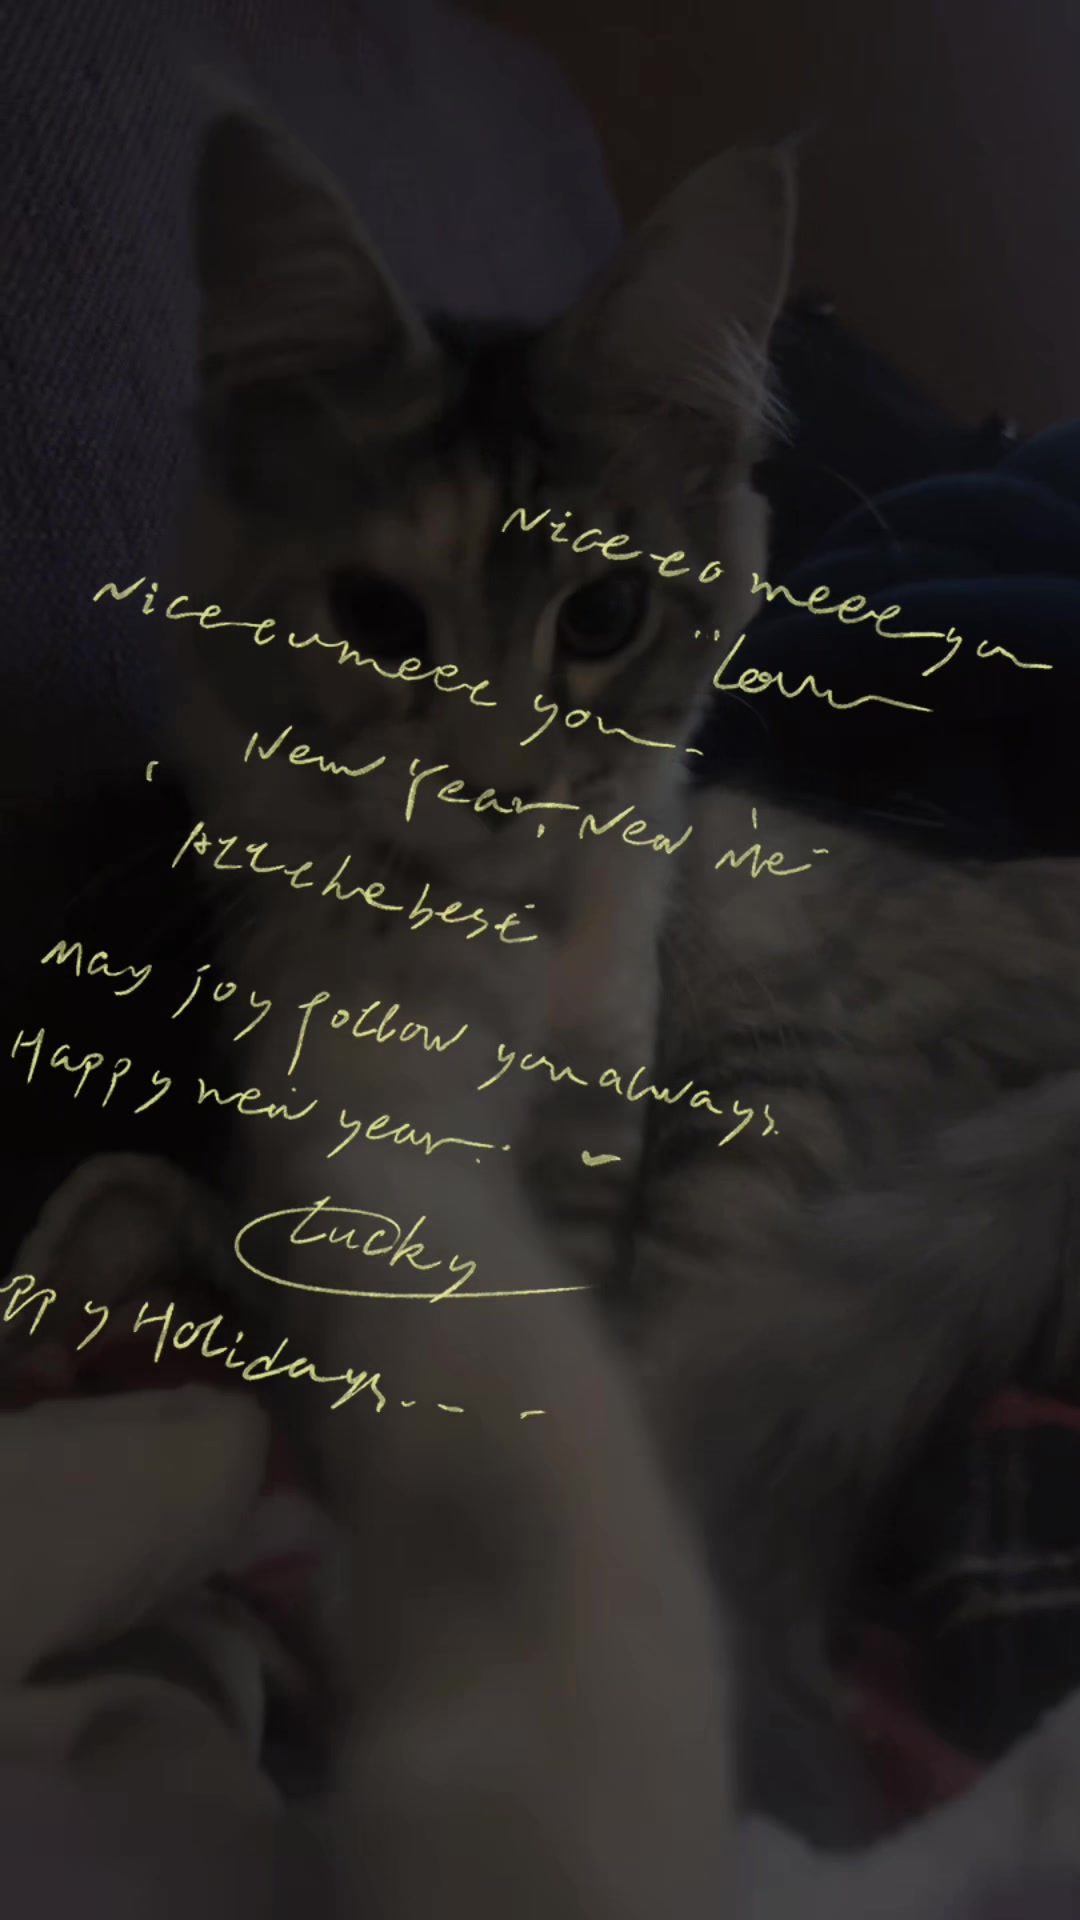 Nice to meet you
Nice to meet you
New Year, New Me
All the best
May joy follow you always.
Happy new year
Lucky
ppy Holidays